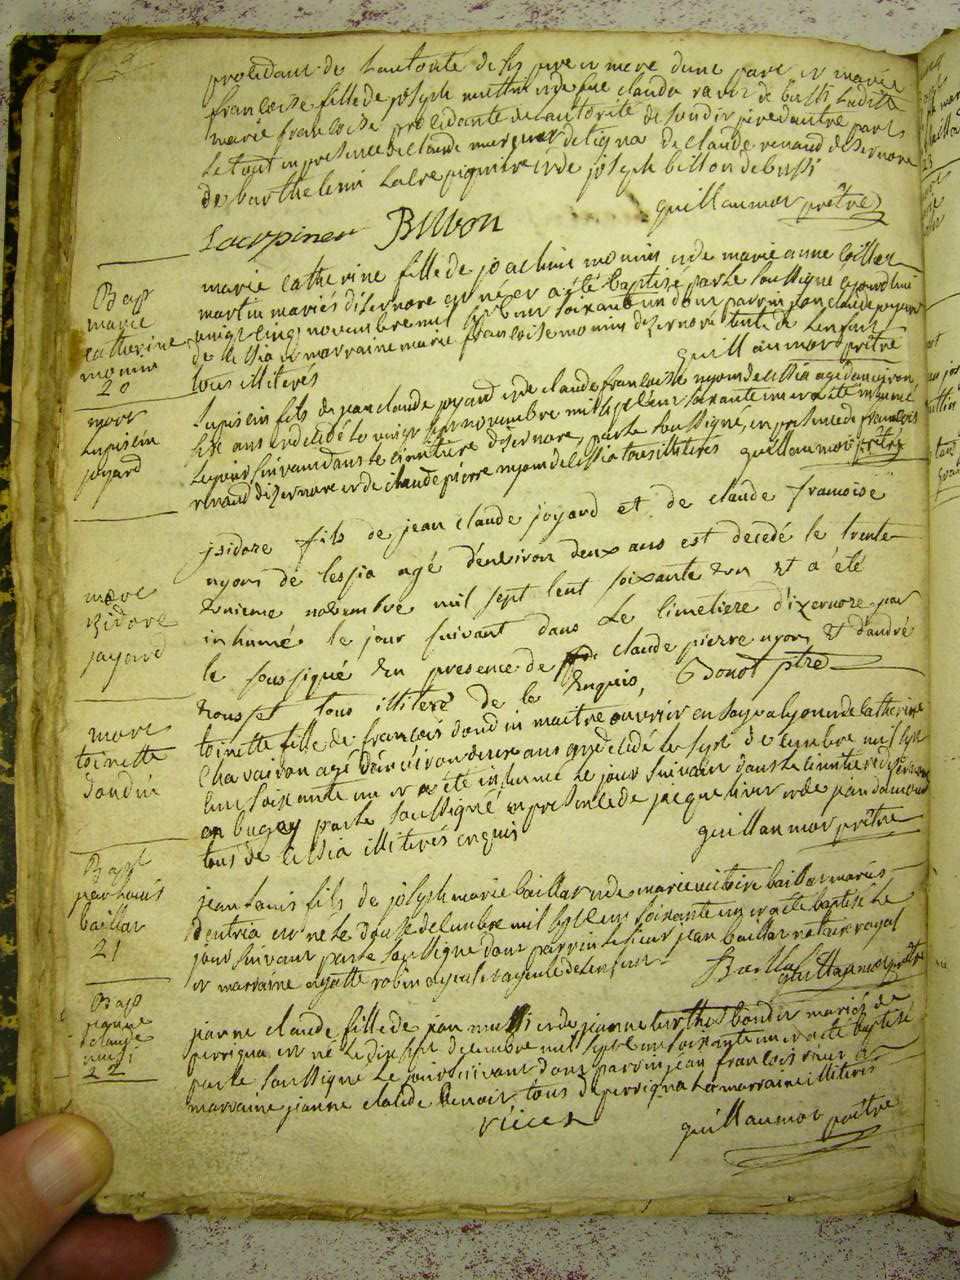 procedant de l'autorité de ses pere et mere d'une part et marie
françoise fille de joseph et de feu clauda de bussi ladite
marie françoise procedante de l'autorité de son dit pere d'autre part
le tout en presence de claude de tigna de claude renaud d'izernore
de barthelemi et de joseph billon de bussi
guillaumot prêtre
Lacrpiner Billion
Bap
marie
catherine
monin
20
marie catherine fille de joachim monin et de marie anne
martin mariés d'izernore est née et a été baptisé par le soussigné aujourdhui
vingt cinq novembre mil sept cent soixante un dont parrain jean claude joyard
de lessia et marraine marie françoise monin d'izernore tante de l'enfant
tous illiterés guillaumot prêtre
mort
lupisin
joyard
lupisin fils de jean claude joyard et de claude françoise nyon de lessia agé d'environ
six ans est decedé le vingt sept novembre mil sept cent soixante un et a été inhumé
le jour suivant dans le cimetiere d'izernore, par le soussigné, en presence de françois
renaud d'izernore et de claude pierre nyon de lessia tous illiterés guillaumot prêtre
mort
izidore
joyard
jsidore fils de jean claude joyard et de claude francoise
nyon de lessia agé d'environ deux ans est decedé le trente
unieme novembre mil sept cent soixante un et a été
inhumé le jour suivant dans le cimetiere d'izernore par
le soussigné en presence de claude pierre nyon et d'andré
rousset tous illiteré de ce enquis, Bonot ptre
mort
toinette
dondin
toinette fille de françois dondin maitre ouvrier en soye a lyon et de catherine
chavairon agé d'environ deux ans est decedé le sept decembre mil sept
cent soixante un et a été inhumé le jour suivant dans le cimetiere d'izernore
en bugey par le soussigné en presence de jacque et de jean
tous de lessia illiterés enquis guillaumot prêtre
Bapt
jean louis
baillat
21
jean louis fils de joseph marie baillat et de marie victoire baillat mariés
d'entria est né le douse decembre mil sept cent soixante un et a été baptisé le
jour suivant par le soussigné dont parrain le sieur jean baillat notaire royal
et marraine agatte robin ayeul et ayeule de l'enfant Baillat guillaumot prêtre
Bap
jeanne
claude
22
jeanne claude fille de jean et de jeanne bondet mariés de
perrigna est né le dix sept decembre mil sept cent soixante un et a été baptisé
par le soussigné le jour suivant dont parrain jean françois et
marraine jeanne claude benoit tous de perrigna la marraine illiterés
guillaumot prêtre